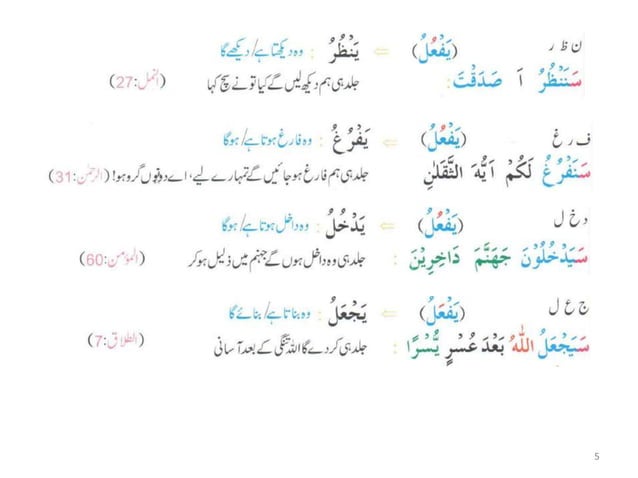 ن ظ ر (يَفْعُلُ) ⇐ يَنْظُرُ : وہ دیکھتا ہے/ دیکھے گا
سَنَنْظُرُ اَ صَدَقْتَ : جلد ہی ہم دیکھ لیں گے کیا تو نے سچ کہا (النمل:27)
ف ر غ (يَفْعُلُ) ⇐ يَفْرُغُ : وہ فارغ ہوتا ہے/ ہوگا
سَنَفْرُغُ لَكُمْ اَيُّهَ الثَّقَلٰنِ جلد ہی ہم فارغ ہو جائیں گے تمہارے لیے، اے دونوں گروہو! (الرحمٰن:31)
د خ ل (يَفْعُلُ) ⇐ يَدْخُلُ : وہ داخل ہوتا ہے/ ہوگا
سَيَدْخُلُوْنَ جَهَنَّمَ دَاخِرِيْنَ : جلد ہی وہ داخل ہوں گے جہنم میں ذلیل ہو کر (المؤمن:60)
ج ع ل (يَفْعَلُ) ⇐ يَجْعَلُ : وہ بناتا ہے/ بنائے گا
سَيَجْعَلُ اللّٰهُ بَعْدَ عُسْرٍ يُّسْرًا : جلد ہی کر دے گا اللہ تنگی کے بعد آسانی (الطلاق:7)
5